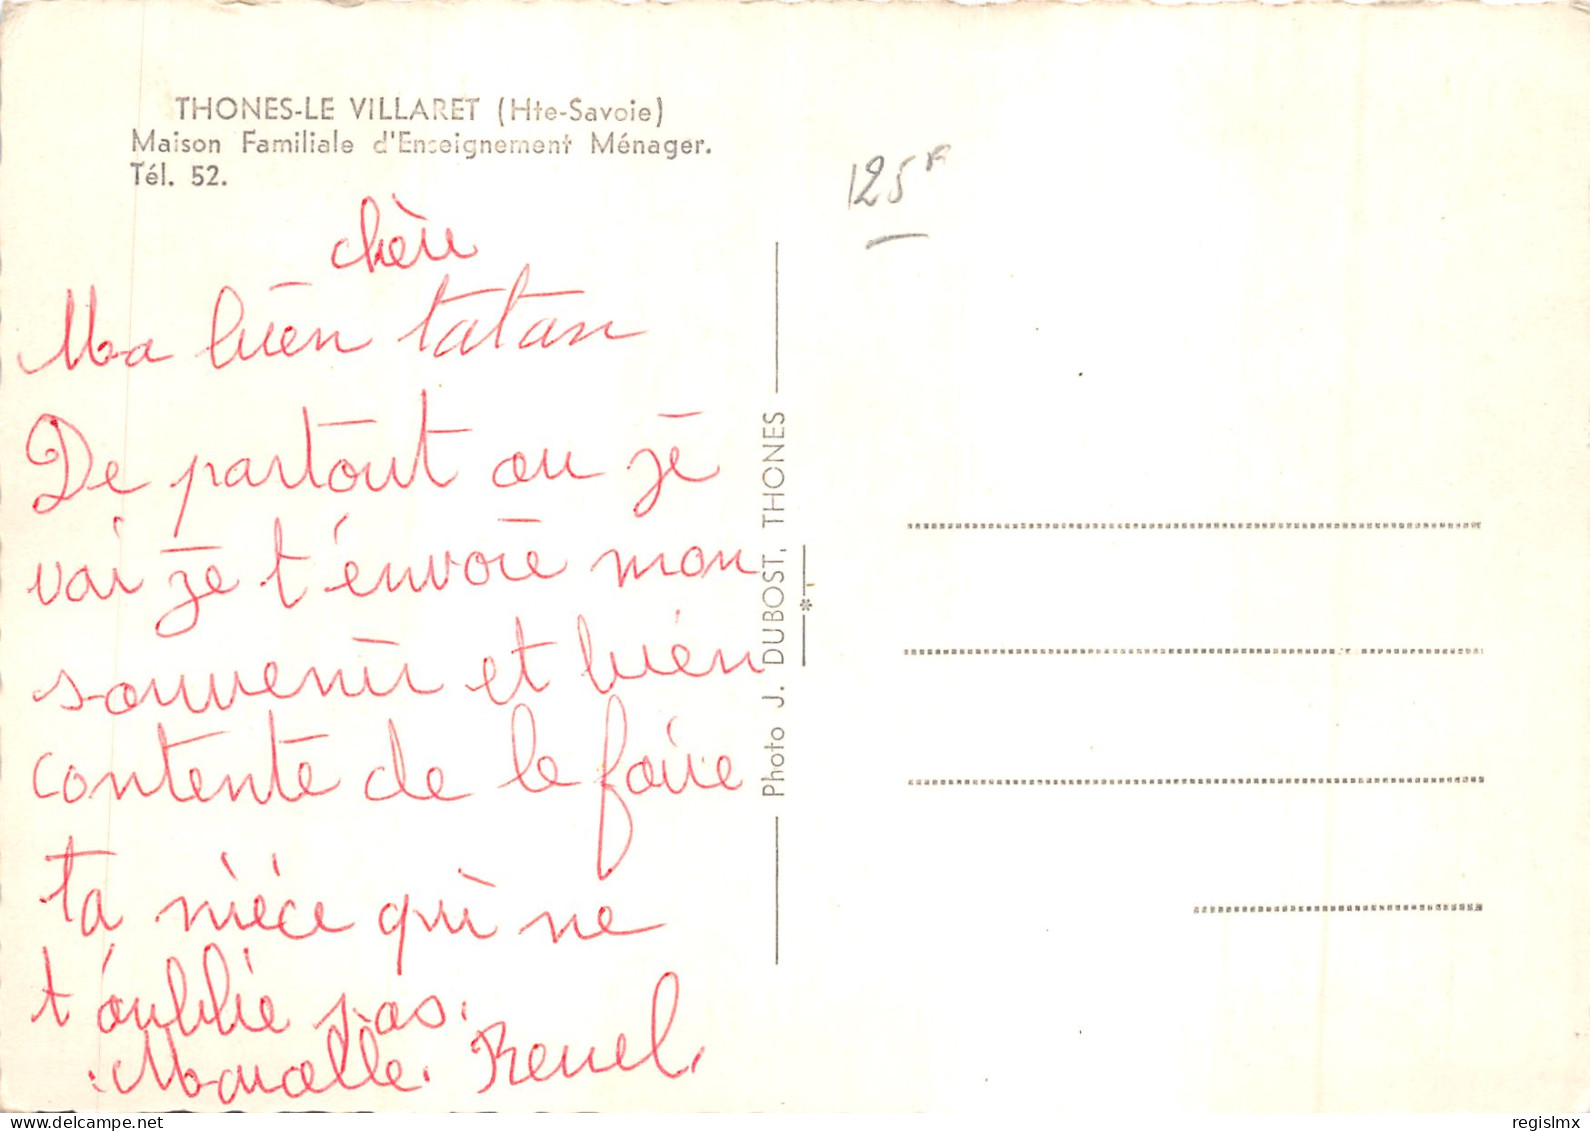 THONES-LE VILLARET (Hte-Savoie)
Maison Familiale d'Enseignement Ménager.
Tél. 52.
125F
chère
Ma bien tatan
De partout ou je
vai je t'envoie mon
souvenir et bien
contente de le faire
ta nièce qui ne
t'oublie pas.
Marcelle. Revel.
Photo J. DUBOST, THONES
delcampe.net
regislmx